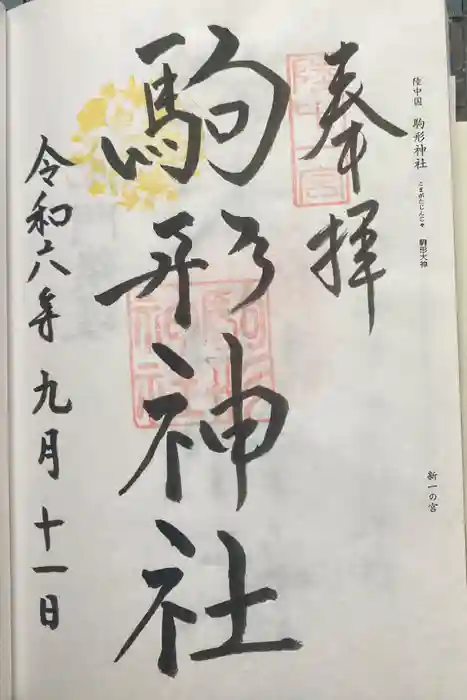 陸中国 駒形神社 こまがたじんじゃ 駒形大神
新一の宮
奉拝
陸中一宮
駒形神社
駒形神社
令和六年九月十一日